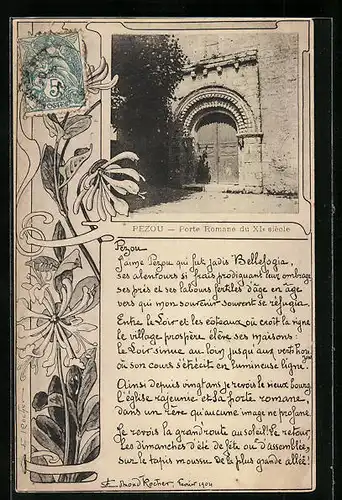 PEZOU — Porte Romane du XIe siècle
Pezou
J'aime Pezou qui fut jadis Bellefogia,
ses alentours si frais prodiguant leur ombrage
ses prés et ses labours fertiles d'âge en âge
vers qui mon souvenir souvent se réfugia.
Entre le Loir et les côteaux où croît la vigne
le village prospère élève ses maisons:
le Loir sinue au loin jusqu'aux verts hori
où son cours s'étrécit en lumineuse ligne.
Ainsi depuis vingt ans je revois le vieux bourg
l'église rajeunie et sa porte romane,
dans un rêve qu'aucune image ne profane
Je revois la grand'route au soleil! Le retour,
les dimanches d'été de fête ou d'assemblée,
sur le tapis moussu de la plus grande allée!
Edmond Rocher, 1904